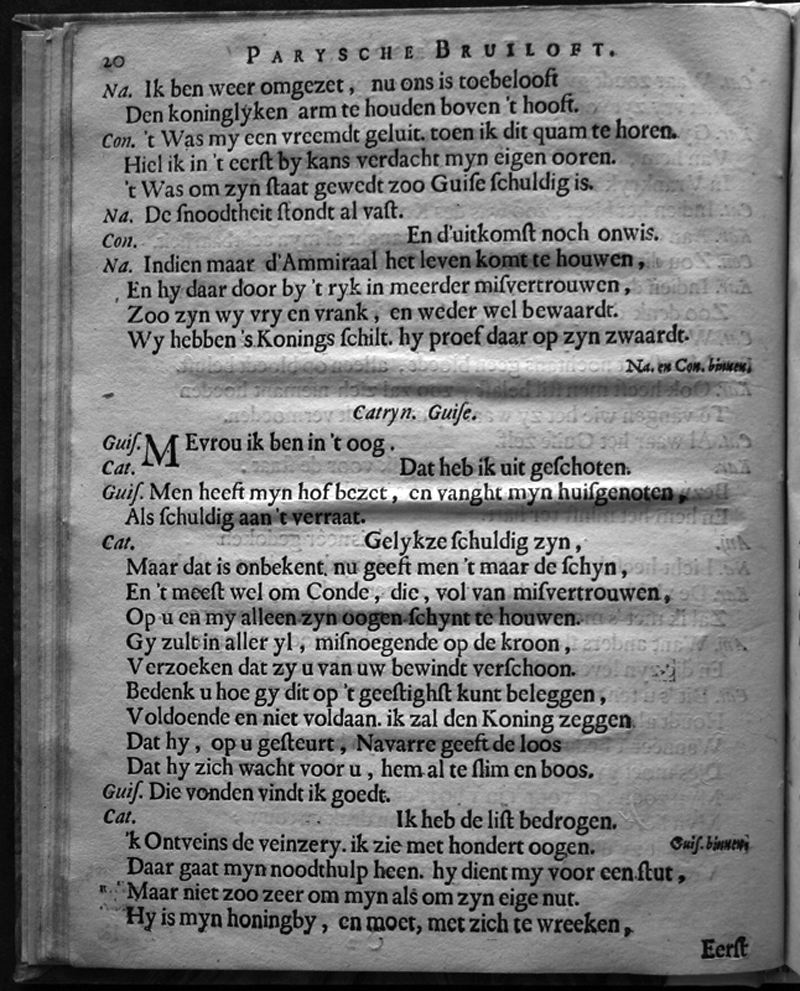 20 PARYSCHE BRUILOFT.
Na. Ik ben weer omgezet, nu ons is toebelooft
Den koninglyken arm te houden boven 't hooft.
Con. 't Was my een vreemdt geluit. toen ik dit quam te horen.
Hiel ik in 't eerſt by kans verdacht myn eigen ooren.
't Was om zyn ſtaat gewedt zoo Guiſe ſchuldig is.
Na. De ſnoodtheit ſtondt al vaſt.
Con. En d'uitkomſt noch onwis.
Na. Indien maar d'Ammiraal het leven komt te houwen,
En hy daar door by 't ryk in meerder miſvertrouwen,
Zoo zyn wy vry en vrank, en weder wel bewaardt.
Wy hebben 's Konings ſchilt. hy proef daar op zyn zwaardt.
Na. en Con. binnen.
Catryn. Guiſe.
Guiſ. MEvrou ik ben in 't oog.
Cat. Dat heb ik uit geſchoten.
Guiſ. Men heeft myn hof bezet, en vanght myn huiſgenoten,
Als ſchuldig aan 't verraat.
Cat. Gelykze ſchuldig zyn,
Maar dat is onbekent. nu geeft men 't maar de ſchyn,
En 't meeſt wel om Conde, die, vol van miſvertrouwen,
Op u en my alleen zyn oogen ſchynt te houwen.
Gy zult in aller yl, miſnoegende op de kroon,
Verzoeken dat zy u van uw bewindt verſchoon.
Bedenk u hoe gy dit op 't geeſtighſt kunt beleggen,
Voldoende en niet voldaan. ik zal den Koning zeggen
Dat hy, op u geſteurt, Navarre geeft de loos
Dat hy zich wacht voor u, hem al te ſlim en boos.
Guiſ. Die vonden vindt ik goedt.
Cat. Ik heb de liſt bedrogen.
'k Ontveins de veinzery. ik zie met hondert oogen. Guiſ. binnen.
Daar gaat myn noodthulp heen. hy dient my voor een ſtut,
Maar niet zoo zeer om myn als om zyn eige nut.
Hy is myn honingby, en moet, met zich te wreeken,
Eerſt